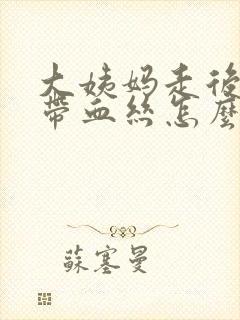 大姨妈走後
帶血丝怎麼
蘇塞曼